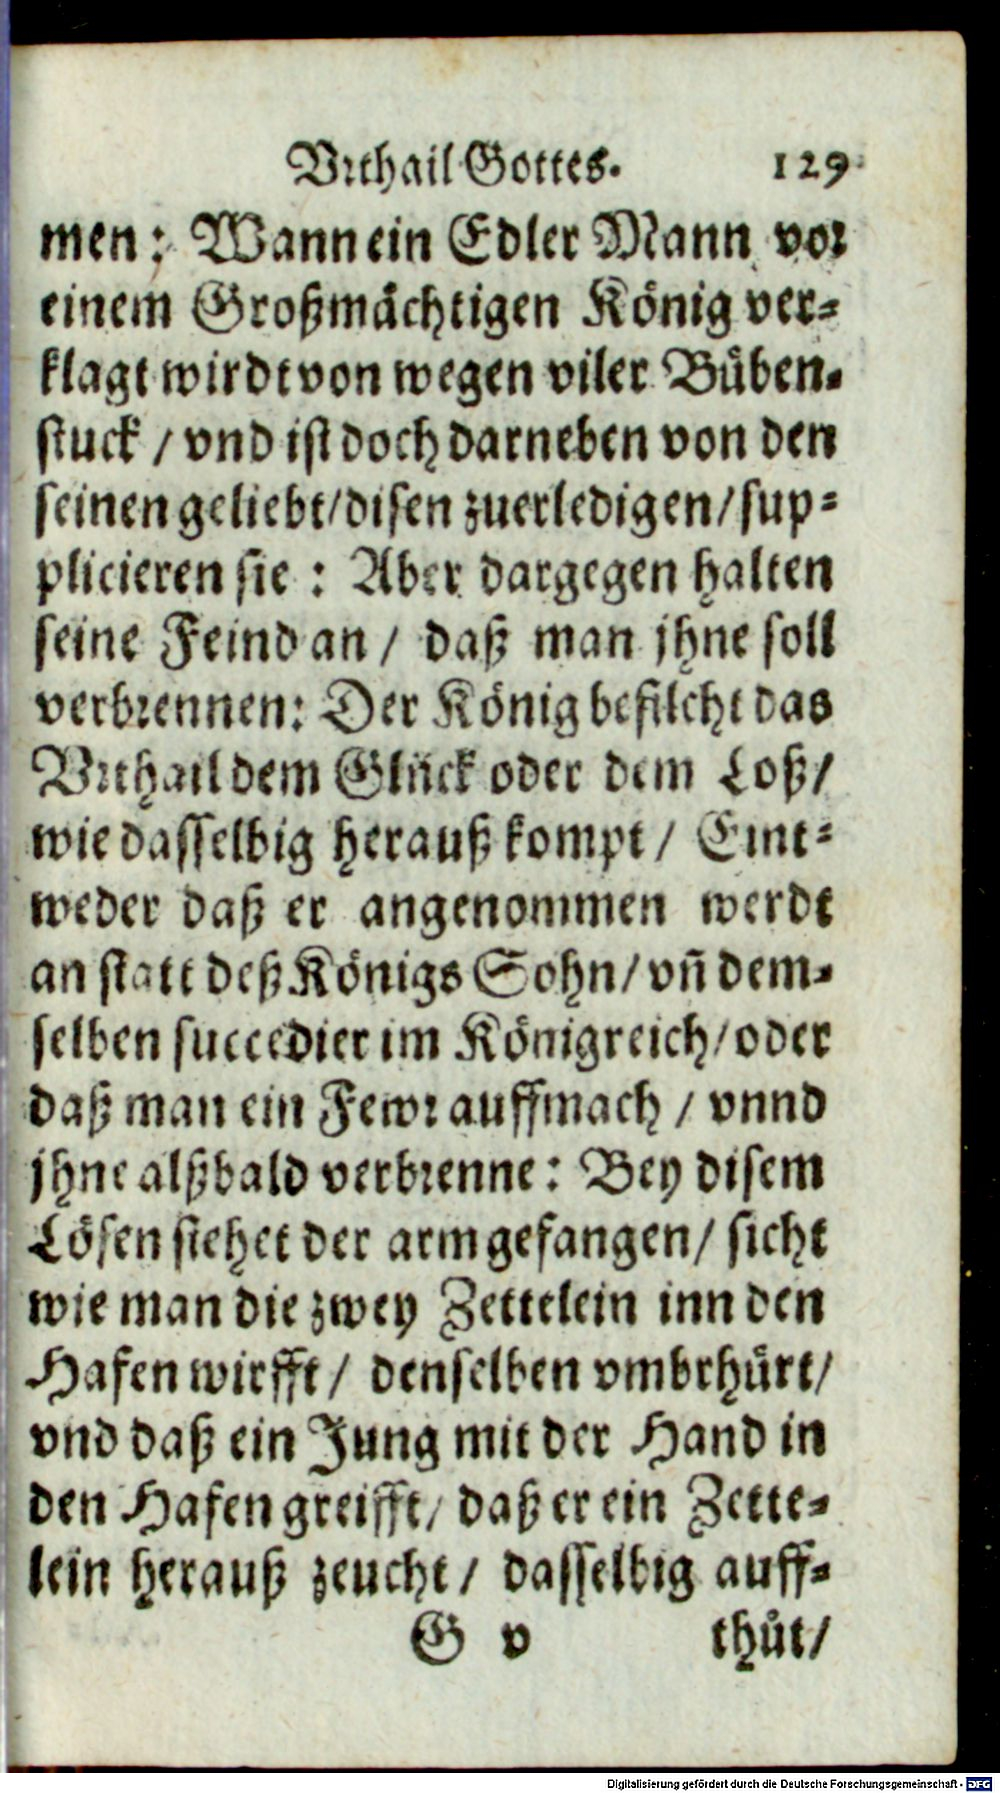 Vrthail Gottes. 129
men: Wann ein Edler Mann vor
einem Großmächtigen König ver-
klagt wirdt von wegen viler Bůben-
stuck / vnd ist doch darneben von den
seinen geliebt/disen zuerledigen/sup-
plicieren sie : Aber dargegen halten
seine Feind an / daß man jhne soll
verbrennen: Der König befilcht das
Vrthail dem Glück oder dem Loß/
wie dasselbig herauß kompt / Eint-
weder daß er angenommen werdt
an statt deß Königs Sohn/vñ dem-
selben succedier im Königreich/oder
daß man ein Fewr auffmach / vnnd
jhne alßbald verbrenne: Bey disem
Lösen stehet der arm gefangen/ sicht
wie man die zwey Zettelein inn den
Hafen wirfft / denselben vmbrhůrt/
vnd daß ein Jung mit der Hand in
den Hafen greifft/ daß er ein Zette-
lein herauß zeucht / dasselbig auff-
G v thůt/
Digitalisierung gefördert durch die Deutsche Forschungsgemeinschaft - DFG